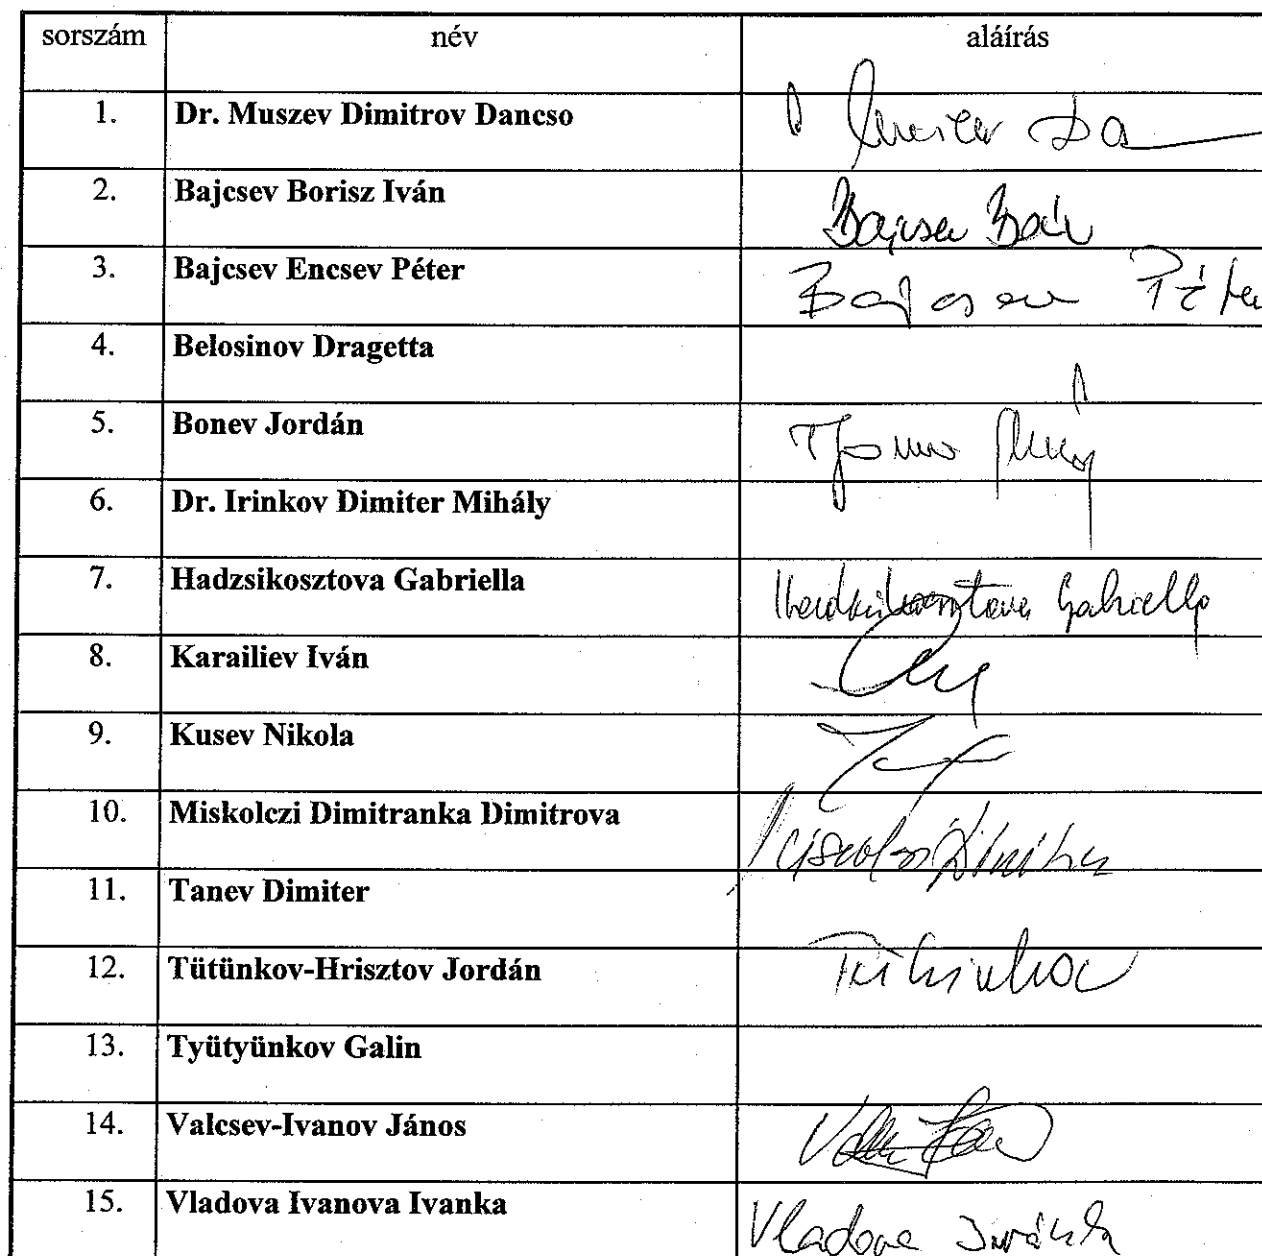 sorszám név aláírás
1. Dr. Muszev Dimitrov Dancso
2. Bajcsev Borisz Iván Bajcsev
3. Bajcsev Encsev Péter Bajcsev Péter
4. Belosinov Dragetta
5. Bonev Jordán
6. Dr. Irinkov Dimiter Mihály
7. Hadzsikosztova Gabriella Hadzsikosztova Gabriella
8. Karailiev Iván
9. Kusev Nikola
10. Miskolczi Dimitranka Dimitrova
11. Tanev Dimiter
12. Tütünkov-Hrisztov Jordán
13. Tyütyünkov Galin
14. Valcsev-Ivanov János
15. Vladova Ivanova Ivanka Vladova Ivánka